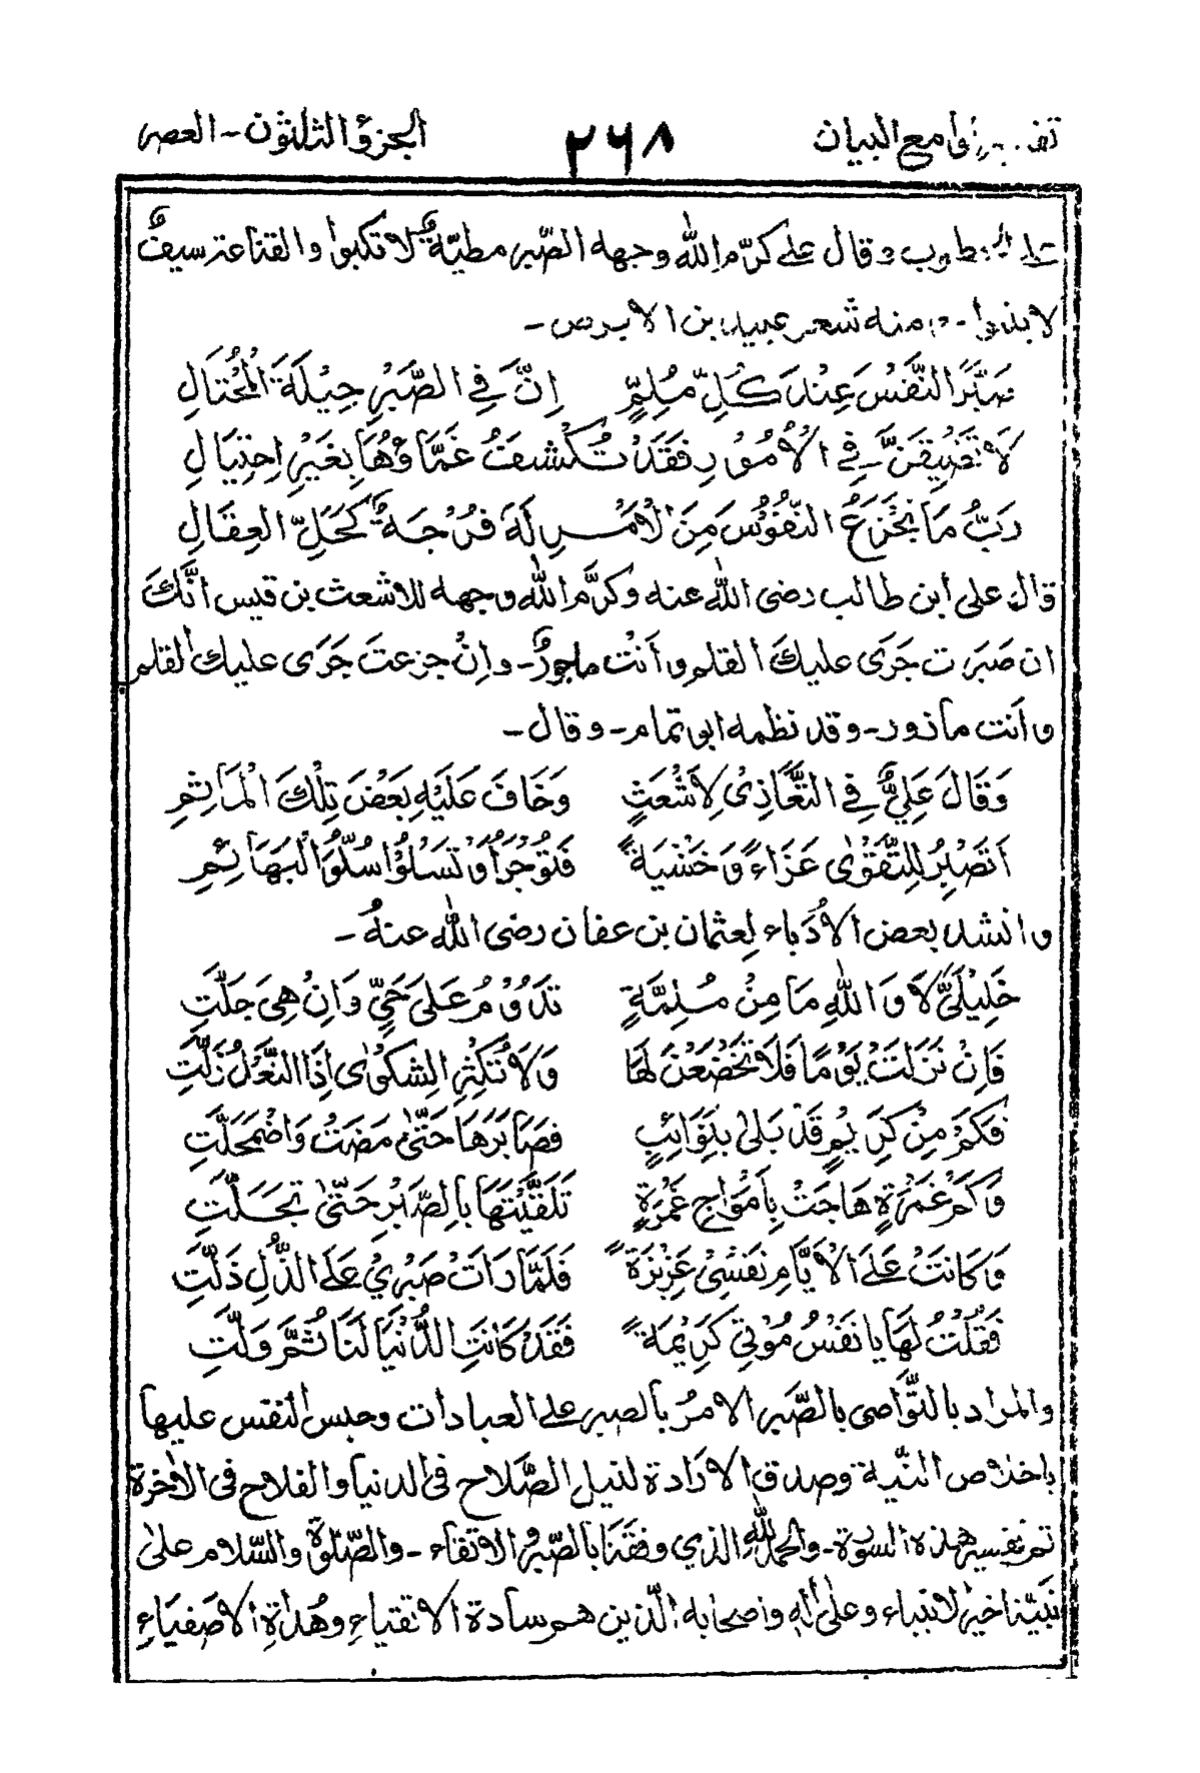 الجزؤ الثلثون - العصر ٢٦٨ تفسير جوامع البيان
مطلوب وقال علي كرّم الله وجهه الصّبر مطيّةٌ لا تكبوا والقناعة سيفٌ
لا ينبوا - ومنه شعر عبيد بن الابرص -
صَبِّرِ النَّفْسَ عِنْدَ كُلِّ مُلِمٍّ اِنَّ فِي الصَّبْرِ حِيْلَةَ الْمُحْتَالِ
لَا تَضِيْقَنَّ فِي الْاُمُوْرِ فَقَدْ تُكْشَفُ غَمَّاؤُهَا بِغَيْرِ احْتِيَالِ
رُبَّ مَا تَجْزَعُ النُّفُوْسُ مِنَ الْاَمْرِ لَهُ فُرْجَةٌ كَحَلِّ العِقَالِ
قال على ابن طالب رضى الله عنه وكرَّم الله وجهه للاشعث بن قيس انَّكَ
ان صَبَرت جَرَى عليكَ القلم وأنْت ماجورٌ - واِنْ جزعتَ جَرَى عليك القلم
وأنت مأزور - وقد نظمه ابو تمام - وقال -
وَقَالَ عَلِيٌّ فِي التَّعَازِىْ لِاَشْعَثٍ وَخَافَ عَلَيْهِ بَعْضَ تِلْكَ الْمَاٰثِمِ
اَتَصْبِرُ لِلتَّقْوٰى عَزَاءً وَخَشْيَةً فَتُوْجَرُ اَوْ تَسْلُوْا سُلُوَّ الْبَهَائِمِ
وانشد بعض الاُدَباء لِعثمان بن عفان رضى الله عنهُ -
خَلِيْلَىَّ لَا وَاللهِ مَا مِنْ مُلِمَّةٍ تَدُوْمُ عَلَى حَيٍّ وَاِنْ هِىَ جَلَّتِ
فَاِنْ نَزَلَتْ يَوْمًا فَلَا تَخْضَعَنْ لَهَا وَلَا تُكْثِرِ الشِكْوٰى اِذَا النَّعْلُ زَلَّتِ
فَكَمْ مِنْ كَرِيْمٍ قَدْ بَلىٰ بِنَوَائِبٍ فَصَابَرَهَا حَتّىٰ مَضَتْ وَاضْمَحَلَّتِ
وَكَمْ غَمْرَةٍ هَاجَتْ بِاَمْوَاجِ غَمْرَةٍ تَلَقَّيْتُهَا بِالصَّبْرِ حَتّىٰ تَجَلَّتِ
وَكَانَتْ عَلَى الْاَيَّامِ نَفْسِىْ عَزِيْزَةً فَلَمَّا رَاَتْ صَبْرِيْ عَلَى الذُّلِ ذَلَّتِ
فَقُلْتُ لَهَا يَا نَفْسُ مُوْتِيْ كَرِيْمَةً فَقَدْ كَانَتِ الدُّنْيَا لَنَا ثُمَّ وَلَّتِ
والمراد بالتَّوَاصى بالصَّبر الامرُ بالصبر على العبادات وحبس النفس عليها
باخلاص النيّة وصدق الارَادة لنيل الصَّلاح فى الدنيا والفلاح فى الاٰخرة
تم تفسير هذه السورة - والحمد للهِ الذي وفقنَا بالصَّبْر والاتقاء - والصّلوٰة والسّلام علىٰ
نبيّنا خير الانبياء وعلىٰ اٰلهٖ واصحابه الّذين هم سادة الاتقياءِ وهُداةِ الاصَفيَاءِ